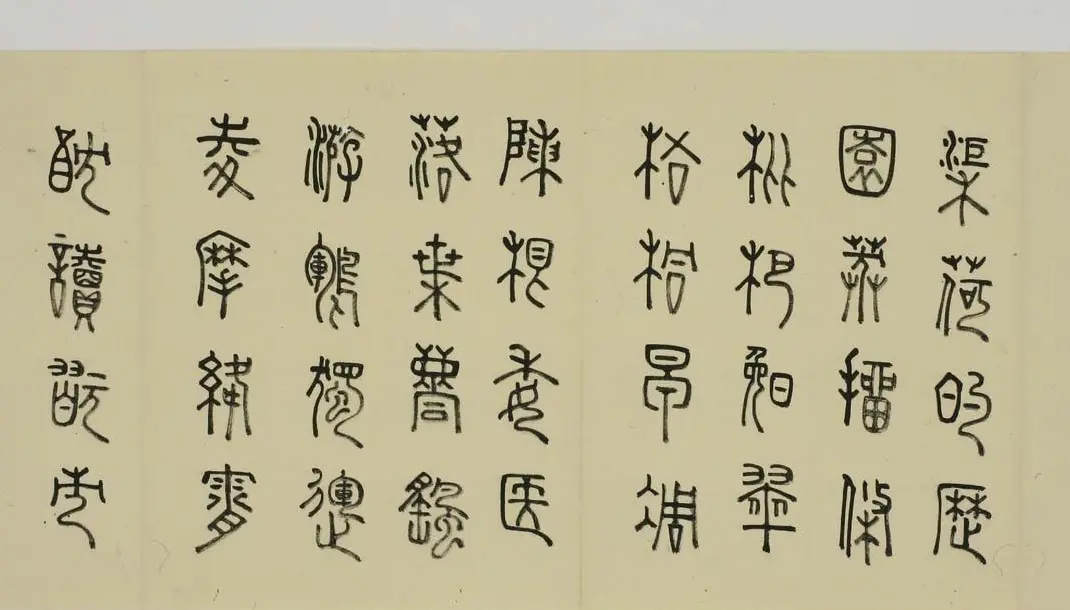 渠荷的歷
園莽抽條
枇杷晚翠
梧桐早凋
陳根委翳
落葉飄颻
游鵾獨運
凌摩絳霄
耽讀翫市